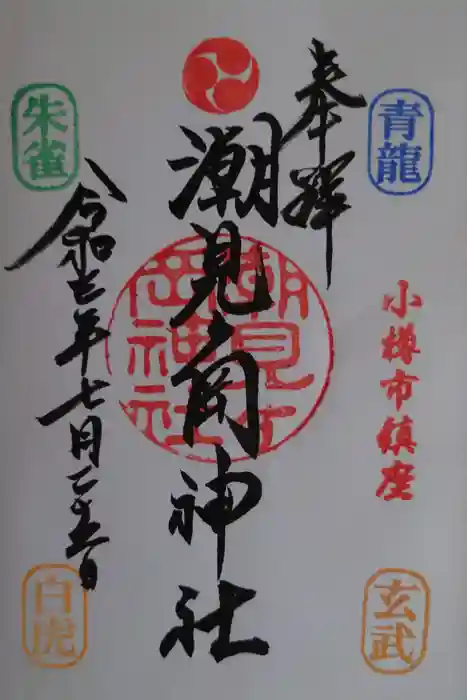 青龍
小樽市鎮座
玄武
奉拝
潮見ヶ岡神社
潮見ヶ岡神社
朱雀
令和三年七月二十五日
白虎